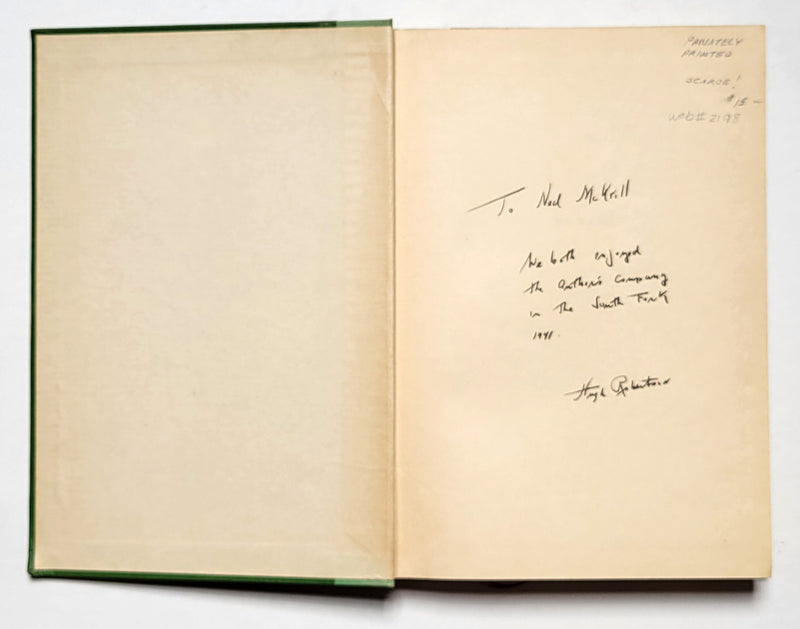 PRIVATELY
PRINTED
SCARCE!
$15 –
To Ned McKrill
We both enjoyed
the author's company
in the South Fork
1941.
Hugh Robertson